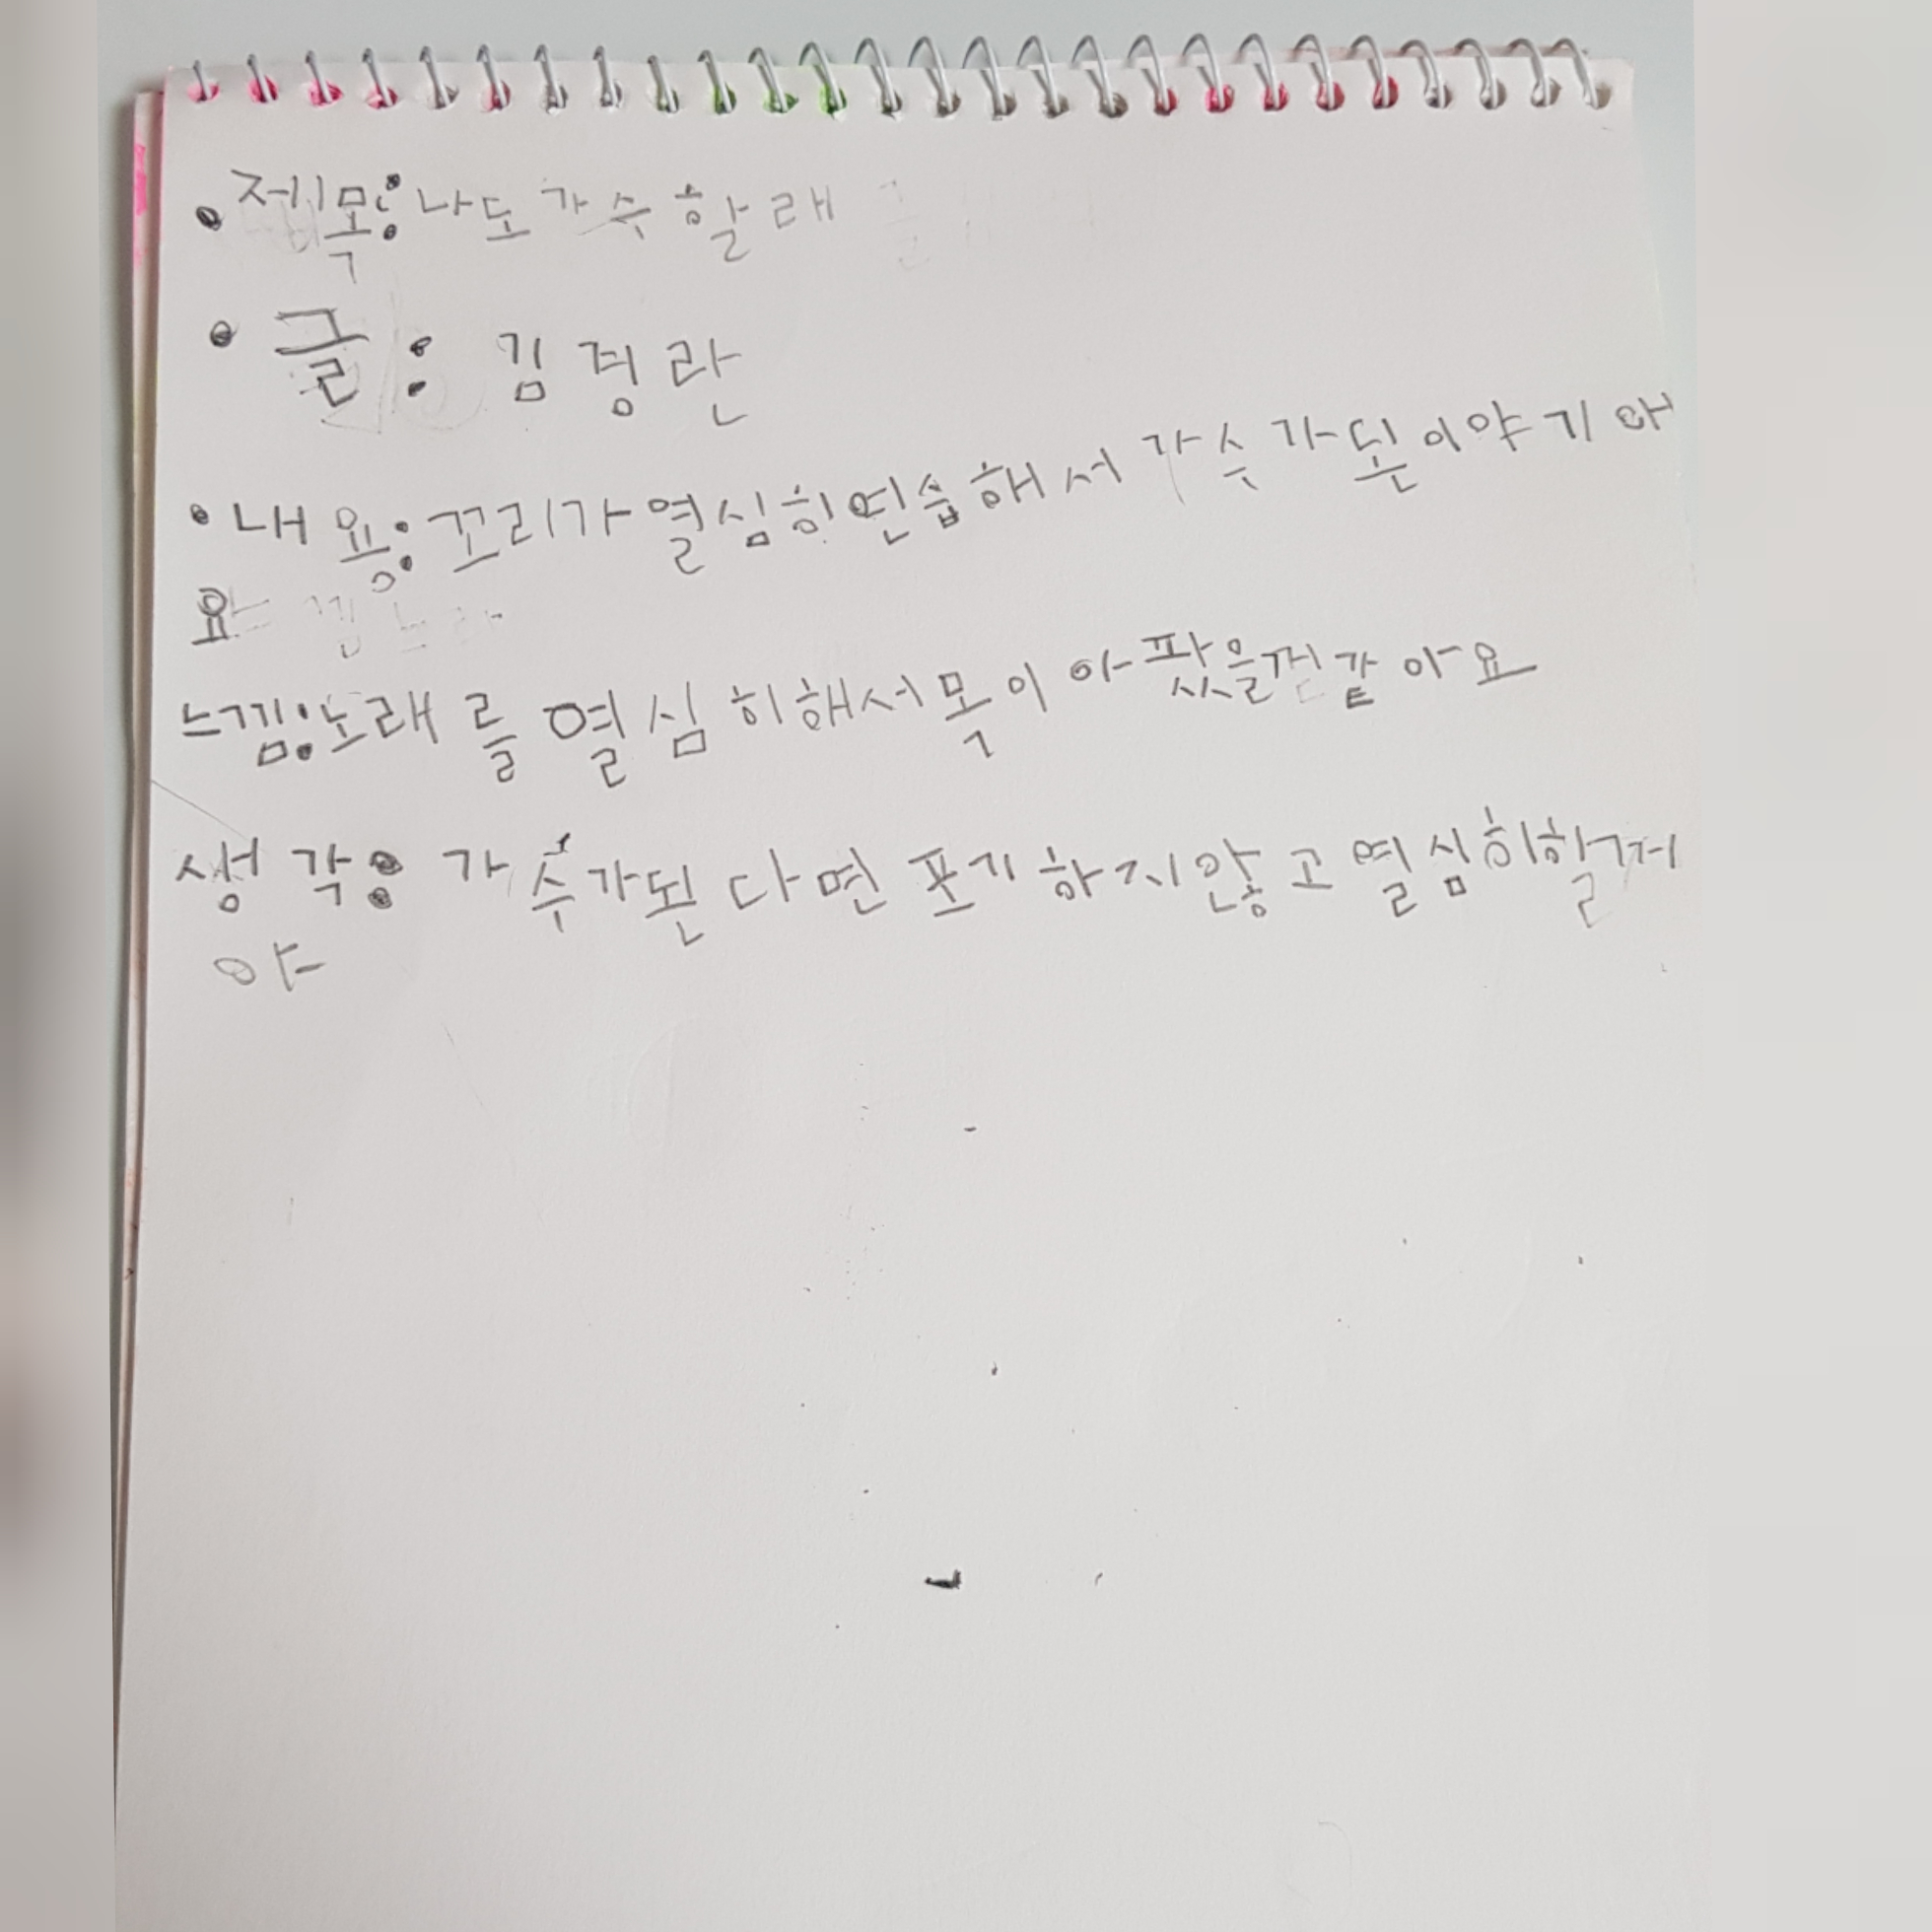 • 제목: 나도 가수 할래
• 글: 김경란
• 내용: 꼬리가 열심히 연습해서 가수가 된 이야기애
요
느낌: 노래를 열심히 해서 목이 아팠을거 같아요
생각: 가수가 된다면 포기하지 않고 열심히 할거
야